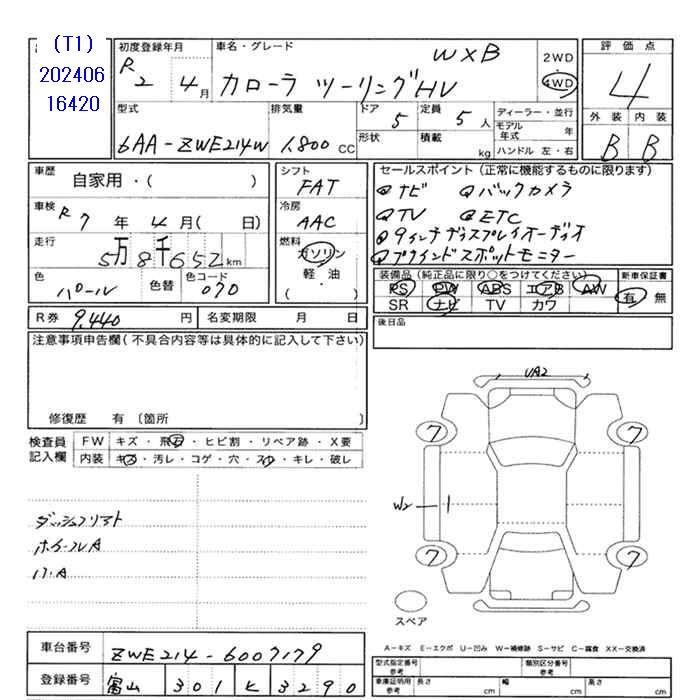 (T1)
202406
16420
初度登録年月
R 2 4月
車名・グレード
W×B
カローラ ツーリングHV
2WD
4WD
評価点
4
外装 内装
B B
型式
6AA-ZWE214W
排気量
1,800 CC
ドア 5
定員 5人
形状
積載 kg
ディーラー・並行
モデル年式 年
ハンドル 左・右
車歴
自家用・( )
車検 R7年 4月( 日)
走行
5万8千652 km
色 パール
色替
色コード 070
シフト
FAT
冷房
AAC
燃料
ガソリン
軽・油
( )
セールスポイント(正常に機能するものに限ります)
ナビ バックカメラ
TV ETC
9インチディスプレイオーディオ
ブラインドスポットモニター
装備品(純正品に限り○をつけてください)
PS PW ABS エアB AW
SR ナビ TV カワ
新車保証書
有 無
R券 9,440円
名変期限 月 日
後日品
注意事項申告欄(不具合内容等は具体的に記入して下さい)
修復歴 有〔箇所 〕
検査員記入欄
FW キズ・飛石・ヒビ割・リペア跡・X要
内装 キズ・汚レ・コゲ・穴・スレ・キレ・破レ
ダッシュフリアト
ホイールA
ハ・A
UA2
7 7
W2
7 7
スペア
A-キズ E-エクボ U-凹み W-補修跡 S-サビ C-腐食 XX-交換済
車台番号 ZWE214-6007179
登録番号 富山 301 ヒ 3290
型式指定番号 参考
類別区分番号 参考
車庫証明用 参考 長さ cm 幅 cm 高さ cm